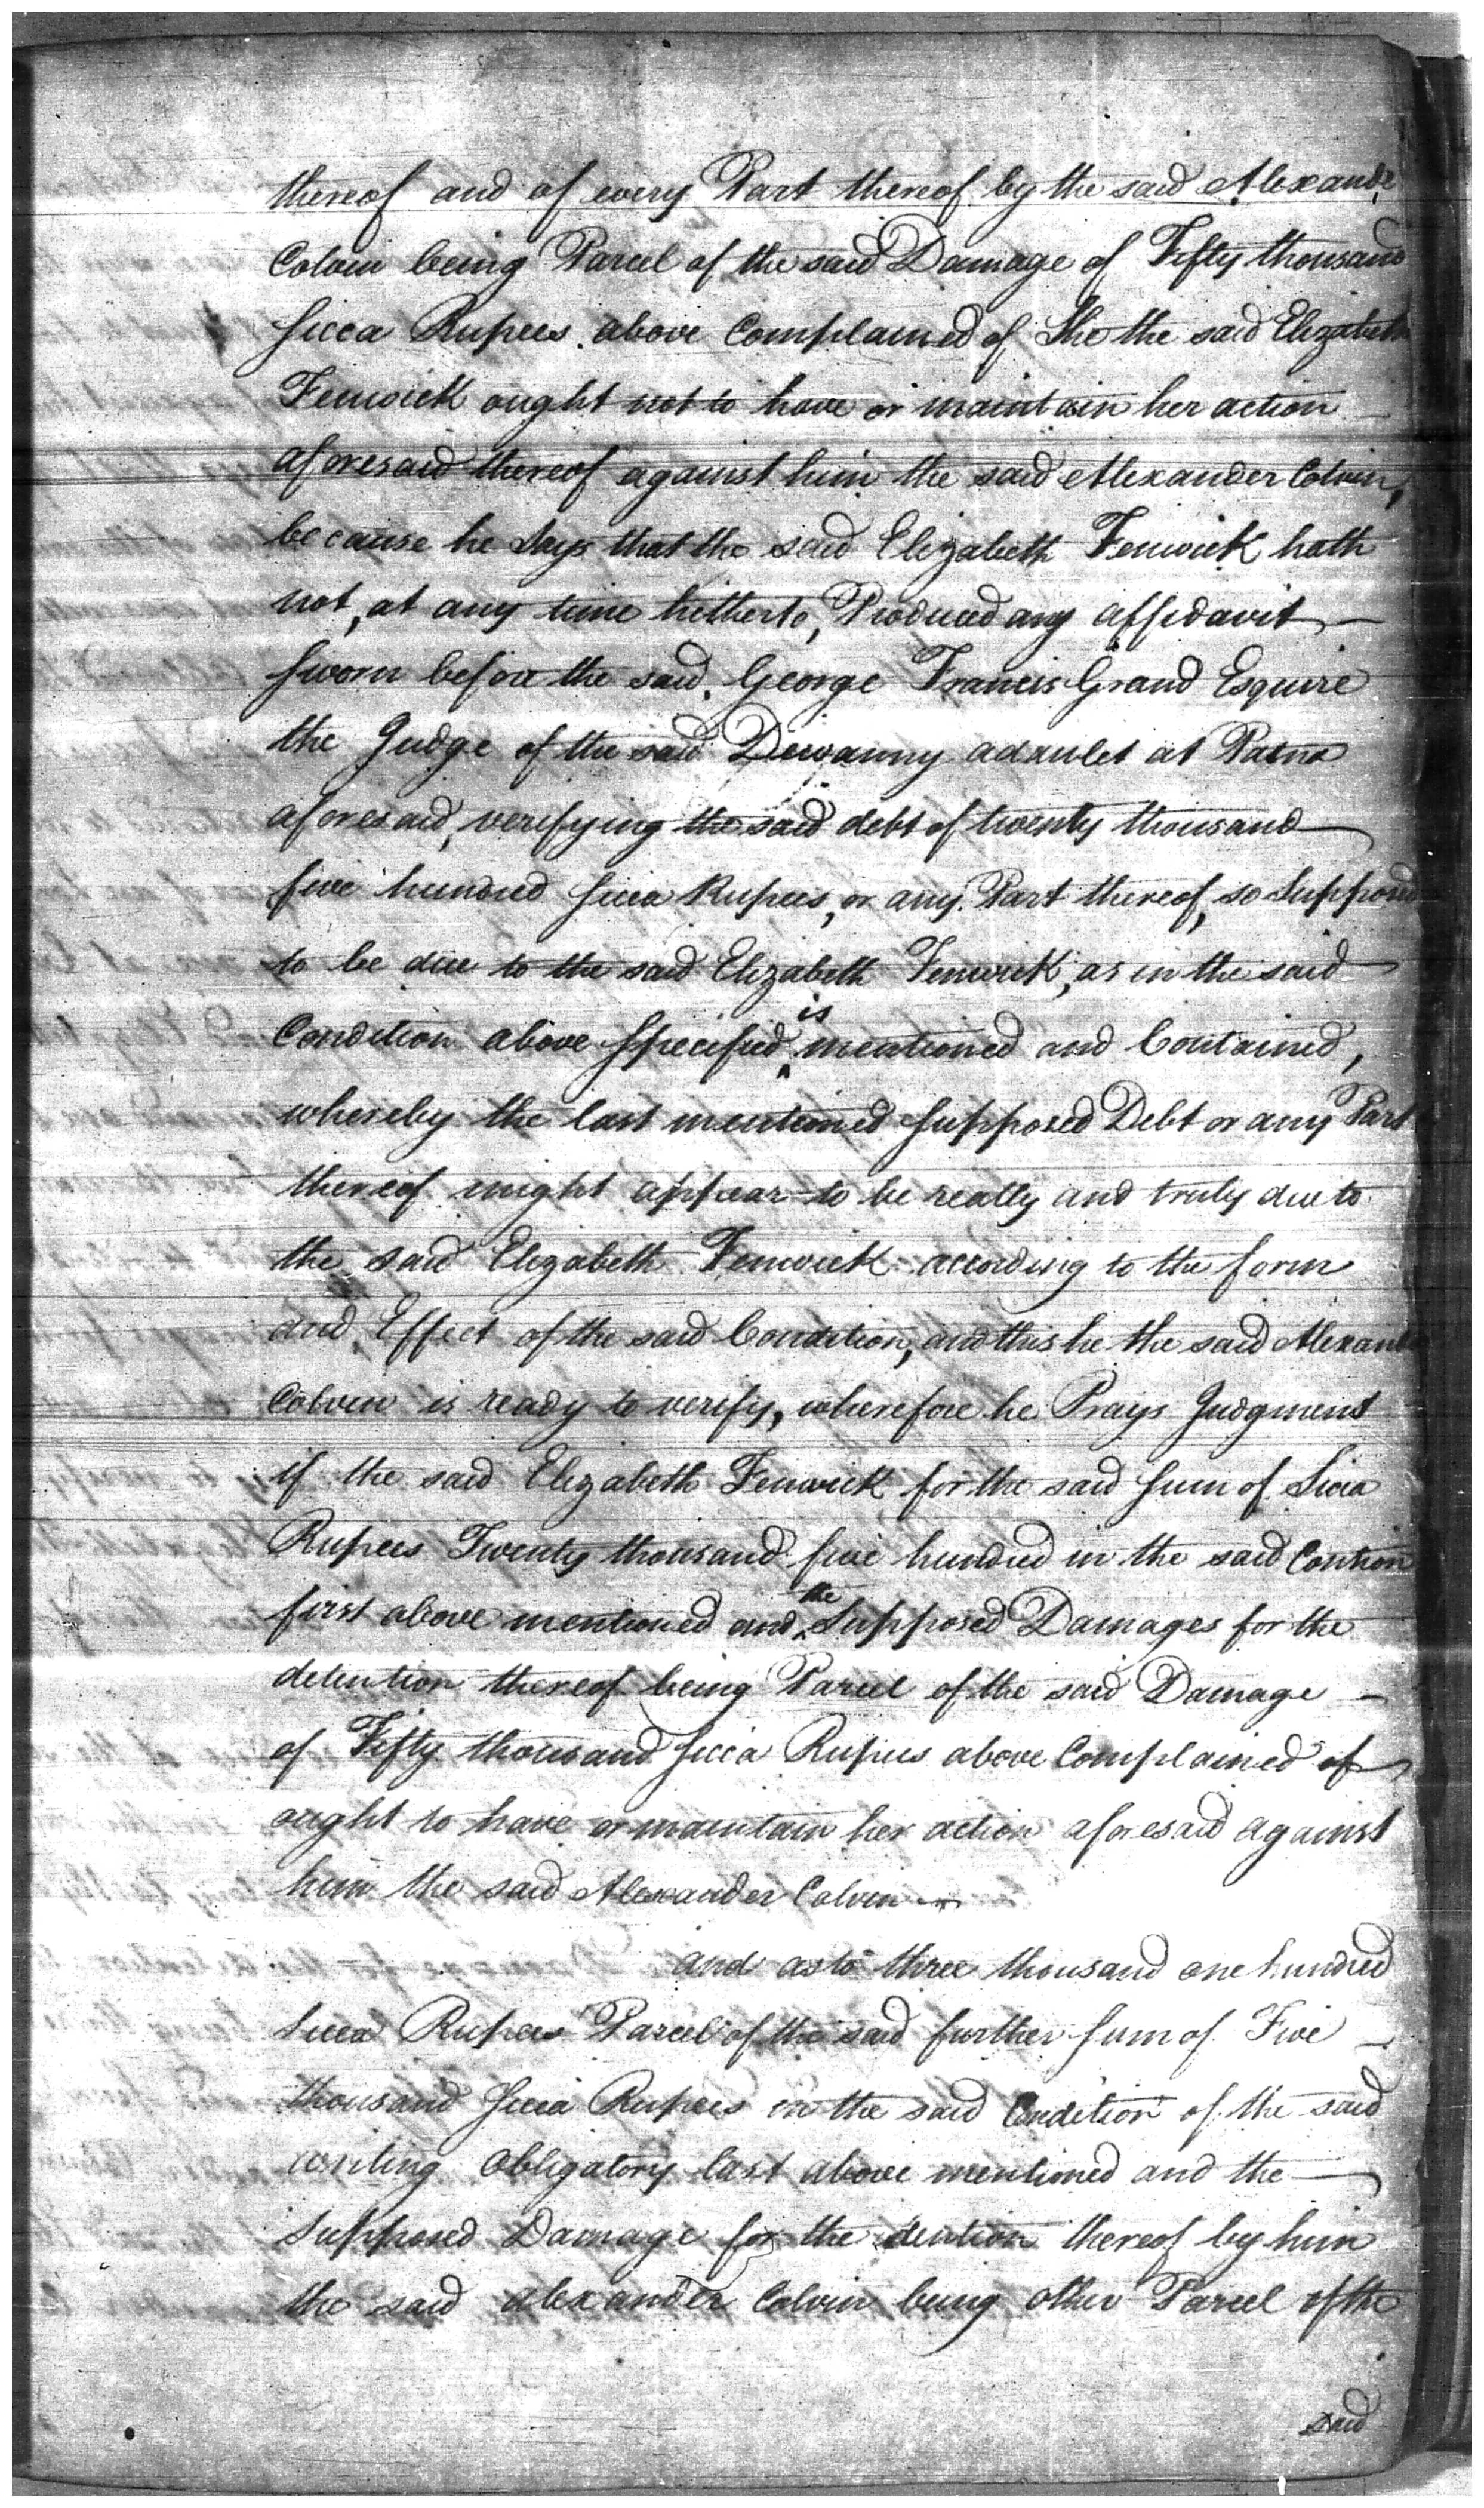 thereof and of every Part thereof by the said Alexandr
Colvin being Parcel of the said Damage of Fifty thousand
sicca Rupees above Complained of She the said Elizabeth
Fenwick ought not to have or maintain her action
aforesaid thereof against him the said Alexander Colvin,
because he Says that the said Elizabeth Fenwick hath
not, at any time hitherto, Produced any affidavit
sworn before the said George Francis Grand Esquire
the Judge of the said Dewanny adaulet at Patna
aforesaid, verifying the said debt of twenty thousand
five hundred sicca Rupees, or any Part thereof, so Supposed
to be due to the said Elizabeth Fenwick, as in the said
Condition above specified is mentioned and Contained,
whereby the last mentioned supposed Debt or any Part
thereof might appear to be really and truly due to
the said Elizabeth Fenwick according to the form
and Effect of the said Condition, and this he the said Alexand
Colvin is ready to verify, wherefore he Prays Judgment
if the said Elizabeth Fenwick for the said sum of Sicca
Rupees Twenty thousand five hundred in the said Contion
first above mentioned and the Supposed Damages for the
detention thereof being Parcel of the said Damage
of Fifty thousand sicca Rupees above Complained of
ought to have or maintain her action aforesaid against
him the said Alexander Colvin
and as to three thousand one hundred
Sicca Rupees Parcel of the said further sum of Five
thousand sicca Rupees in the said Condition of the said
writing Obligatory last above mentioned and the
Supposed Damage for the dention thereof by him
the said alexander Colvin being other Parcel of the
said